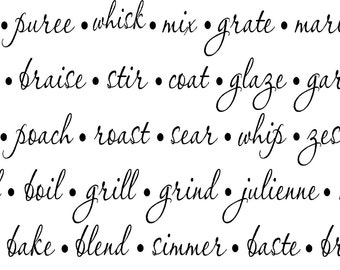 • puree • whisk • mix • grate • mari
• braise • stir • coat • glaze • gar
• poach • roast • sear • whip • zes
• boil • grill • grind • julienne •
bake • blend • simmer • baste • br